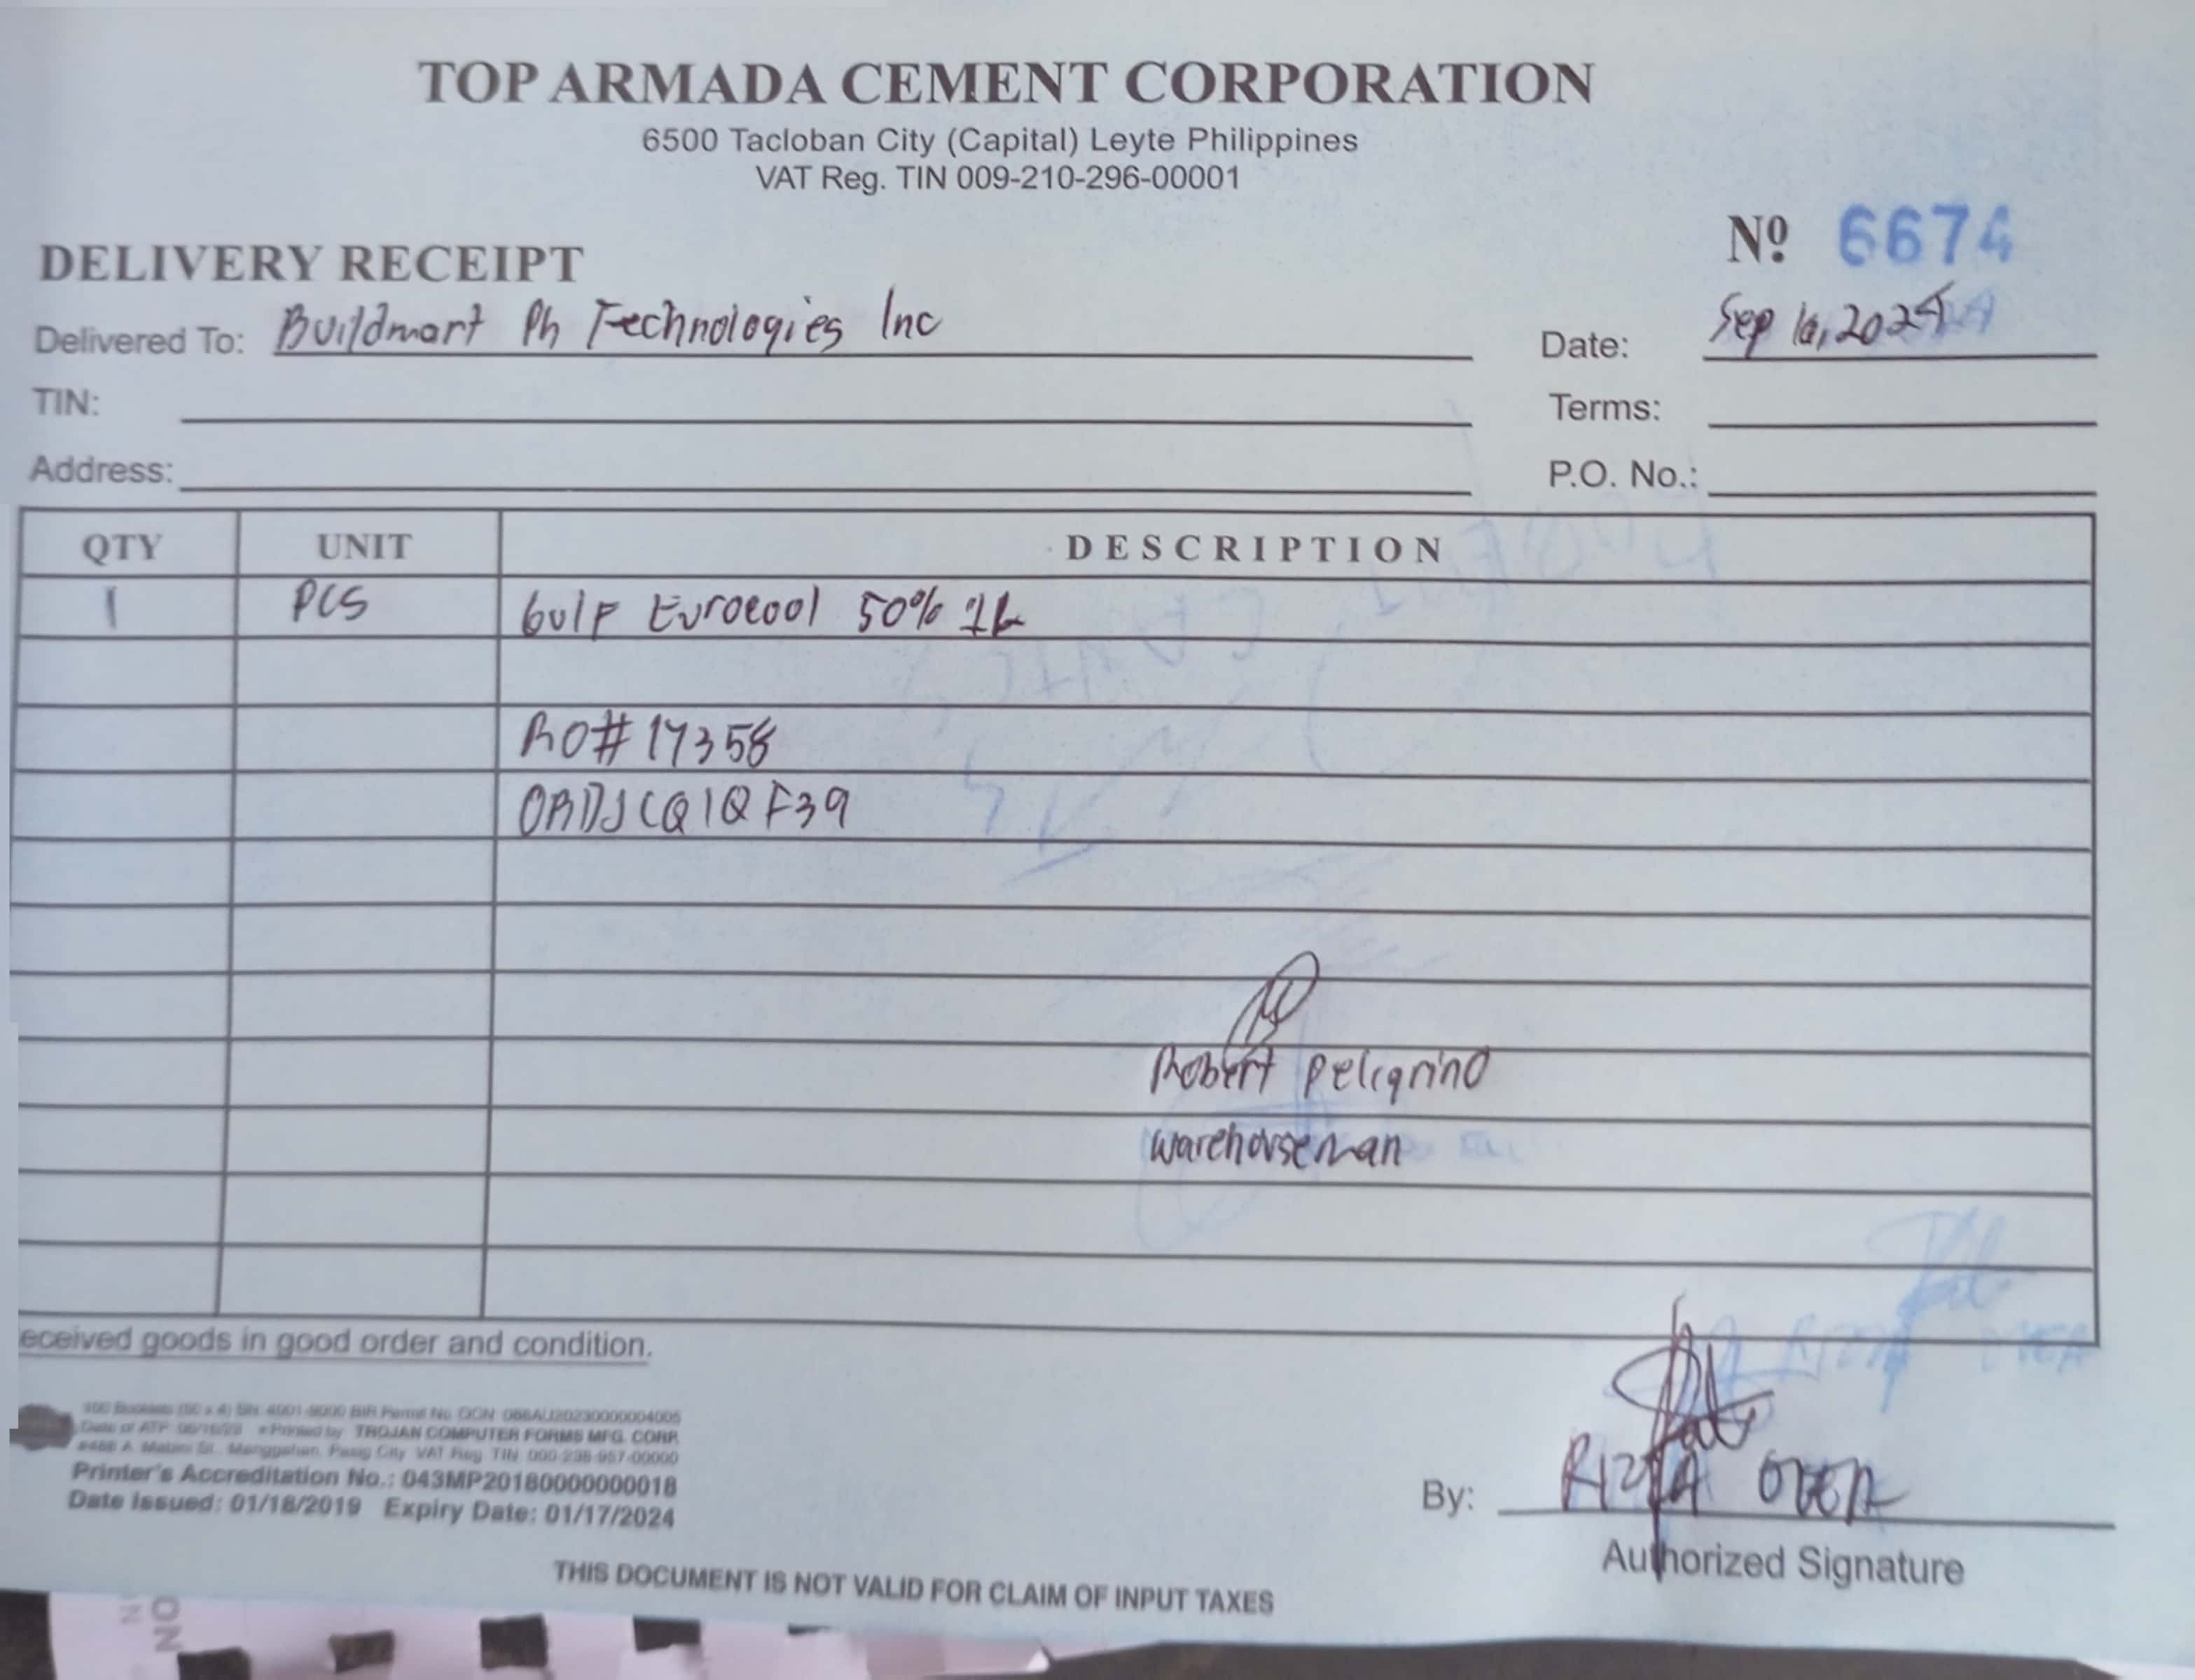 TOP ARMADA CEMENT CORPORATION
6500 Tacloban City (Capital) Leyte Philippines
VAT Reg. TIN 009-210-296-00001
Nº 6674
DELIVERY RECEIPT
Delivered To: Buildmart Ph Technologies Inc
Date: Sep 16, 2024
TIN:
Terms:
Address:
P.O. No.:
QTY UNIT DESCRIPTION
1 PCS Gulf Eurocool 50% 1L
RO# 17358
ORDJCQ1QF39
Robert Peligrino
warehouseman
eceived goods in good order and condition.
100 Booklets (50 x 4) SN: 4001-9000 BIR Permit No. OCN 088AU20230000004005
Printed by TROJAN COMPUTER FORMS MFG. CORP.
Mabini St., Manggahan, Pasig City VAT Reg. TIN 000-238-957-00000
Printer's Accreditation No.: 043MP20180000000018
Date Issued: 01/18/2019 Expiry Date: 01/17/2024
By: RIZZA
Authorized Signature
THIS DOCUMENT IS NOT VALID FOR CLAIM OF INPUT TAXES